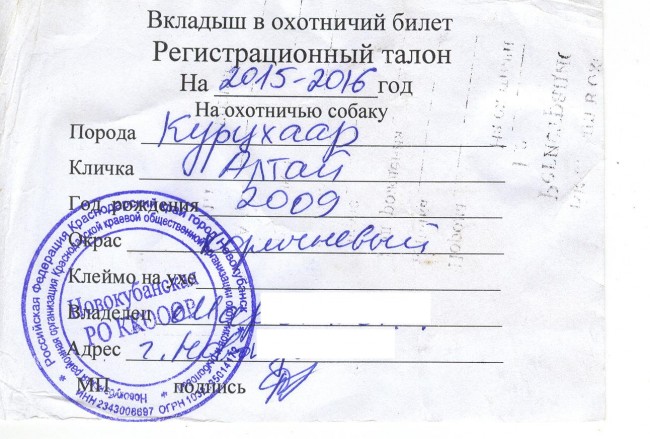 Вкладыш в охотничий билет
Регистрационный талон
На 2015-2016 год
На охотничью собаку
Порода Курцхаар
Кличка Алтай
Год рождения 2009
Окрас коричневый
Клеймо на ухе
Владелец
Адрес г.
МП подпись
Российская Федерация Краснодарский край город Новокубанск
районная организация Краснодарской краевой общественной организации
Новокубанская
РО ККОООР
ИНН 2343006697 ОГРН